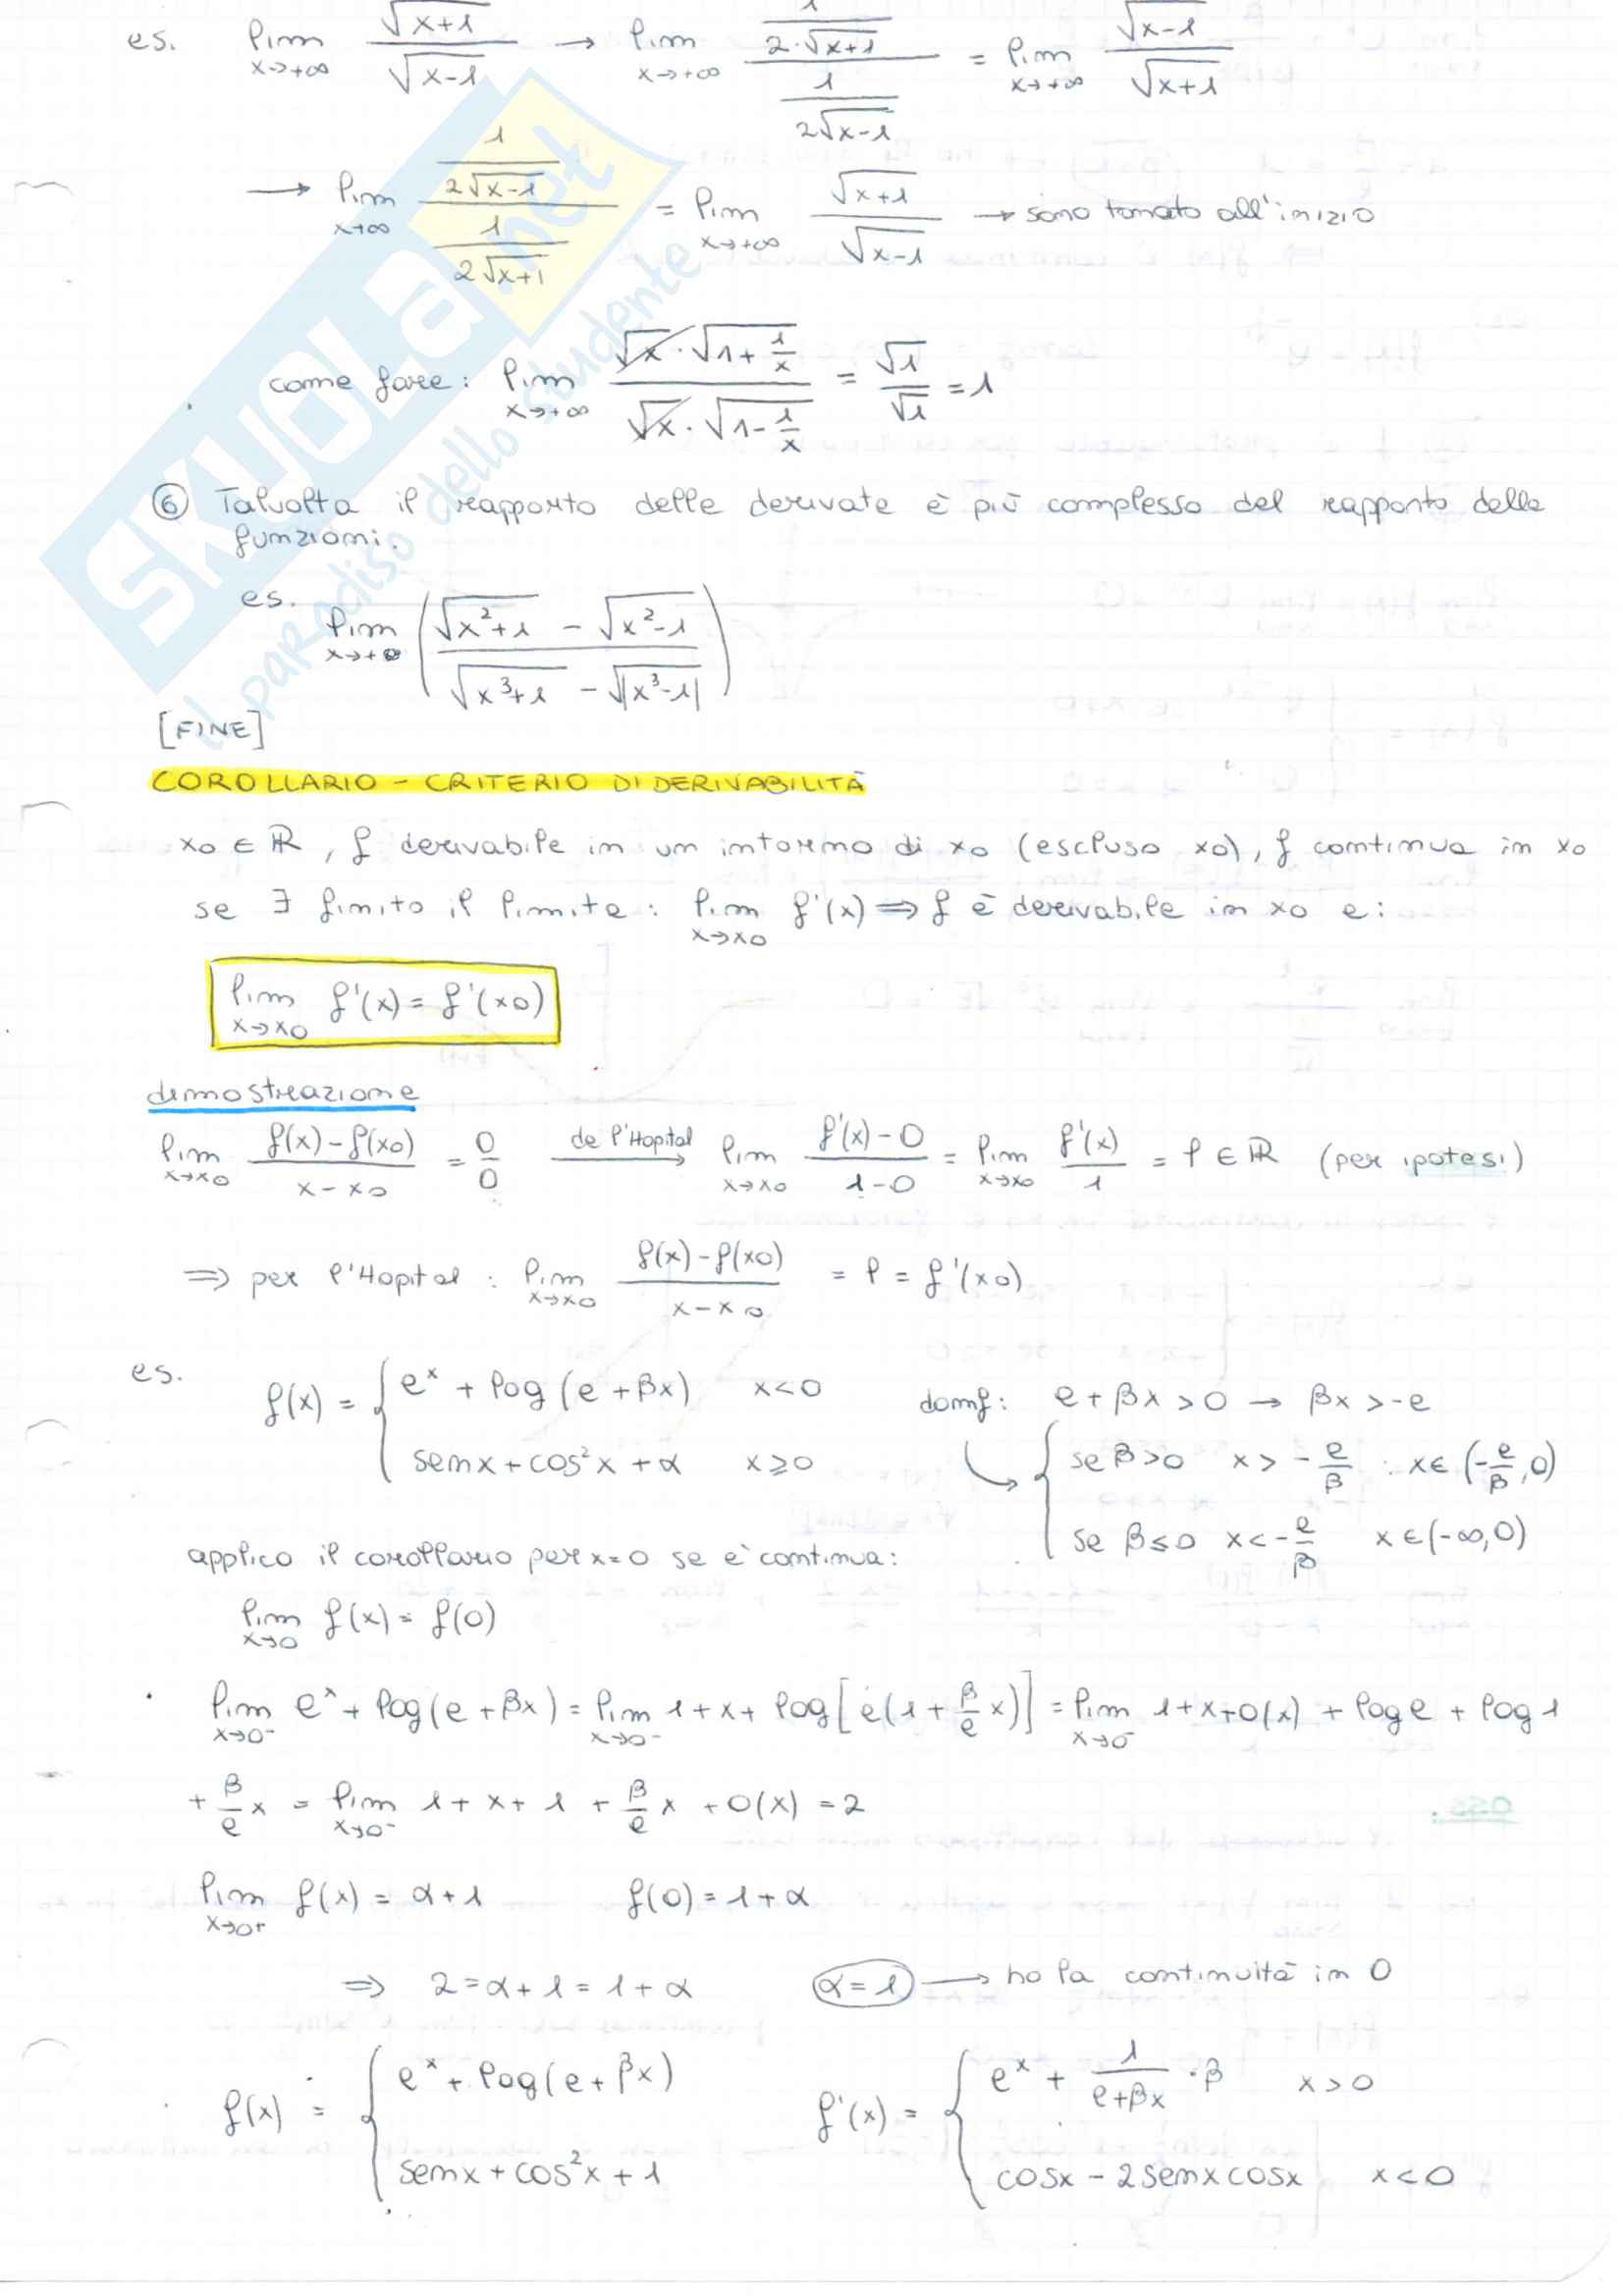 es. lim x→+∞ √(x+1) / √(x-1) → lim x→+∞ (1 / 2·√(x+1)) / (1 / 2√(x-1)) = lim x→+∞ √(x-1) / √(x+1)
→ lim x→∞ (1 / 2√(x-1)) / (1 / 2√(x+1)) = lim x→+∞ √(x+1) / √(x-1) → sono tornato all'inizio
come fare: lim x→+∞ √x·√(1+1/x) / √x·√(1-1/x) = √1/√1 = 1
⑥ Talvolta il rapporto delle derivate è più complesso del rapporto delle
funzioni.
es. lim x→+∞ ( (√(x²+1) - √(x²-1)) / (√(x³+1) - √|x³-1|) )
[FINE]
COROLLARIO - CRITERIO DI DERIVABILITÀ
x0 ∈ ℝ, f derivabile in un intorno di x0 (escluso x0), f continua in x0
se ∃ finito il limite: lim x→x0 f'(x) ⇒ f è derivabile in x0 e:
lim x→x0 f'(x) = f'(x0)
dimostrazione
lim x→x0 (f(x)-f(x0)) / (x-x0) = 0/0 de l'Hopital → lim x→x0 (f'(x)-0) / (1-0) = lim x→x0 f'(x)/1 = l ∈ ℝ (per ipotesi)
⇒ per l'Hopital: lim x→x0 (f(x)-f(x0)) / (x-x0) = l = f'(x0)
es. f(x) = { e^x + log(e+βx) x<0
senx + cos²x + α x≥0
domf: e+βx>0 → βx>-e
{ se β>0 x>-e/β : x∈(-e/β,0)
se β≤0 x<-e/β x∈(-∞,0)
applico il corollario per x=0 se è continua:
lim x→0 f(x) = f(0)
· lim x→0⁻ e^x + log(e+βx) = lim x→0⁻ 1+x+log[e(1+β/e x)] = lim x→0⁻ 1+x+o(x) + log e + log 1
+ β/e x = lim x→0⁻ 1+x+1+β/e x + o(x) = 2
lim x→0+ f(x) = α+1 f(0) = 1+α
⇒ 2=α+1=1+α α=1 → ho la continuità in 0
f(x) = { e^x + log(e+βx)
senx + cos²x + 1
f'(x) = { e^x + 1/(e+βx) ·β x>0
cosx - 2senxcosx x<0
SKUOLA.net
il paradiso dello studente